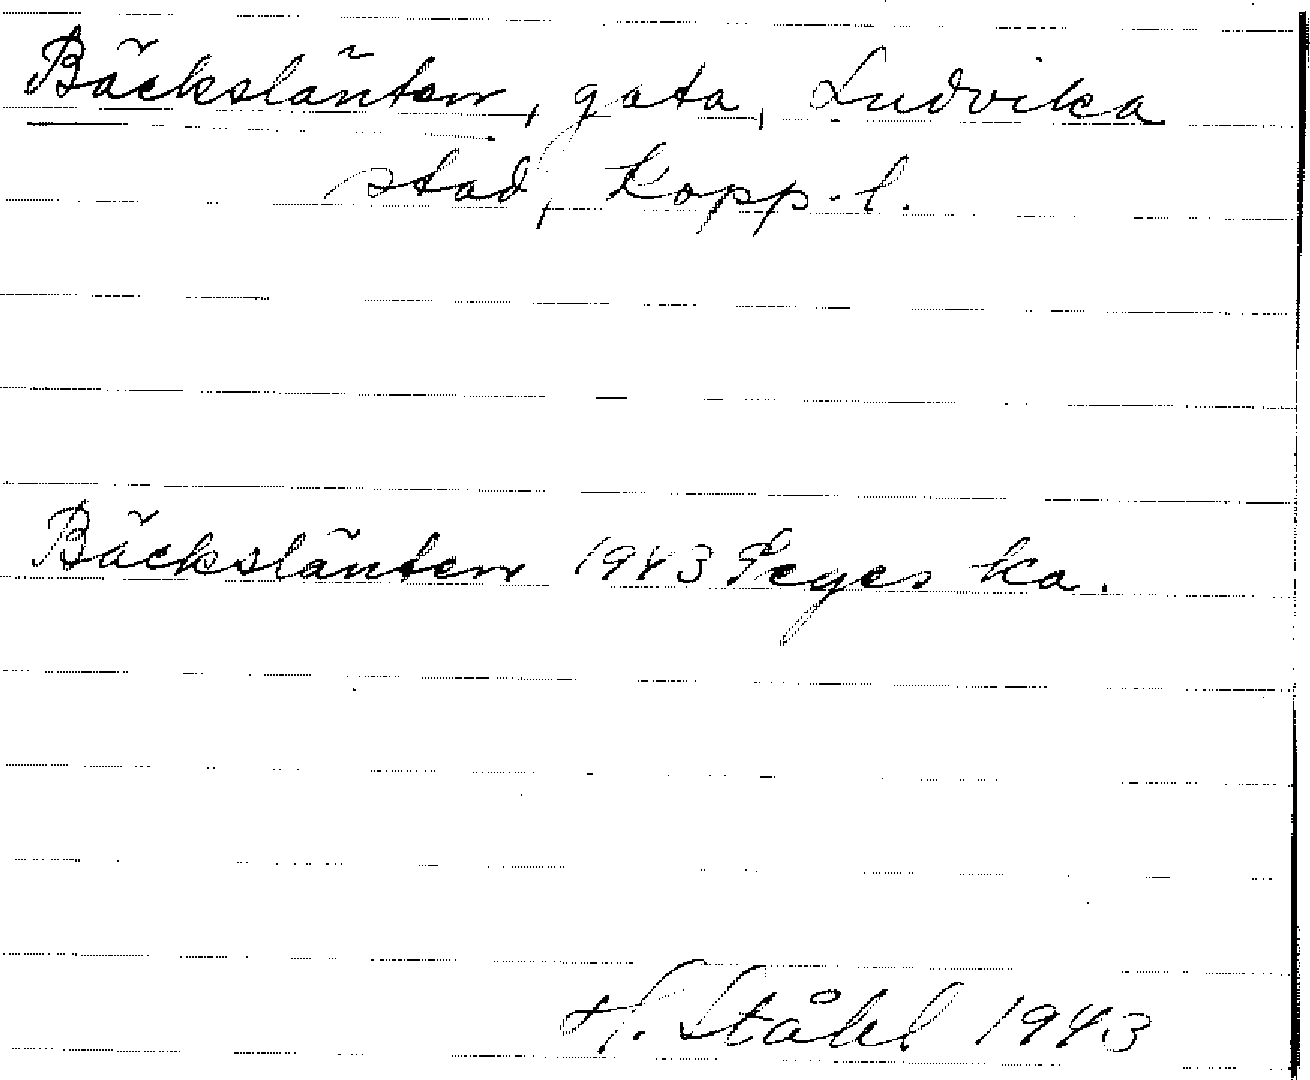 Bäckslänten, gata, Ludvika
stad, Kopp. l.
Bäckslänten 1943 Seges ka.
H. Ståhl 1943